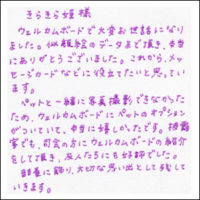 きらきら姫様
ウェルカムボードで大変お世話になり
ました。似顔絵のデータまで頂き、本当
にありがとうございました。これから、メッ
セージカードなどに役立てたいと思ってい
ます。
ペットと一緒に写真撮影できなかっ
たため、ウェルカムボードにペットのオプション
がついていて、本当に嬉しかったです。披露
宴でも、司会の方にウェルカムボードの紹介
をして頂き、友人たちにも好評でした。
部屋に飾り、大切な思い出として残して
いきます。